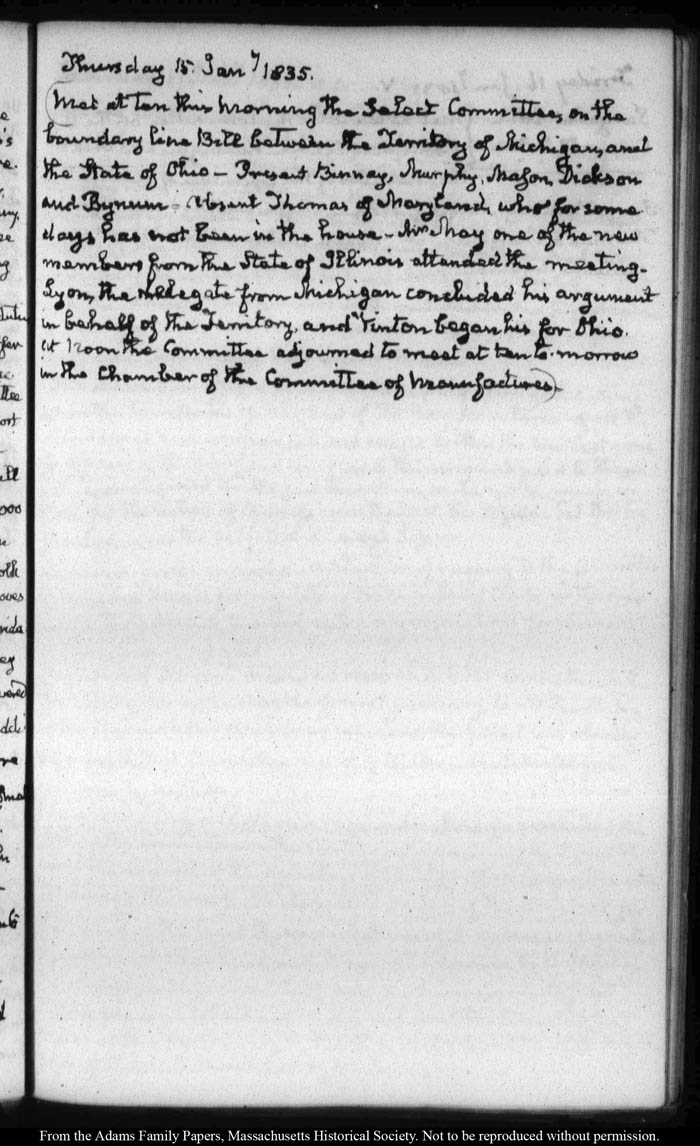 Thursday 15. Jany 1835.
(Met at ten this morning the Select Committee, on the
boundary line Bill between the Territory of Michigan, and
the State of Ohio — Present Binney, Murphy, Mason, Dickson
and Bynum. Absent Thomas of Maryland, who for some
days has not been in the house — Mr May one of the new
members from the State of Illinois attended the meeting.
Lyon, the Delegate from Michigan concluded his argument
in behalf of the Territory, and Vinton began his for Ohio.
At noon the Committee adjourned to meet at ten to-morrow
in the Chamber of the Committee of Manufactures)—
From the Adams Family Papers, Massachusetts Historical Society. Not to be reproduced without permission.